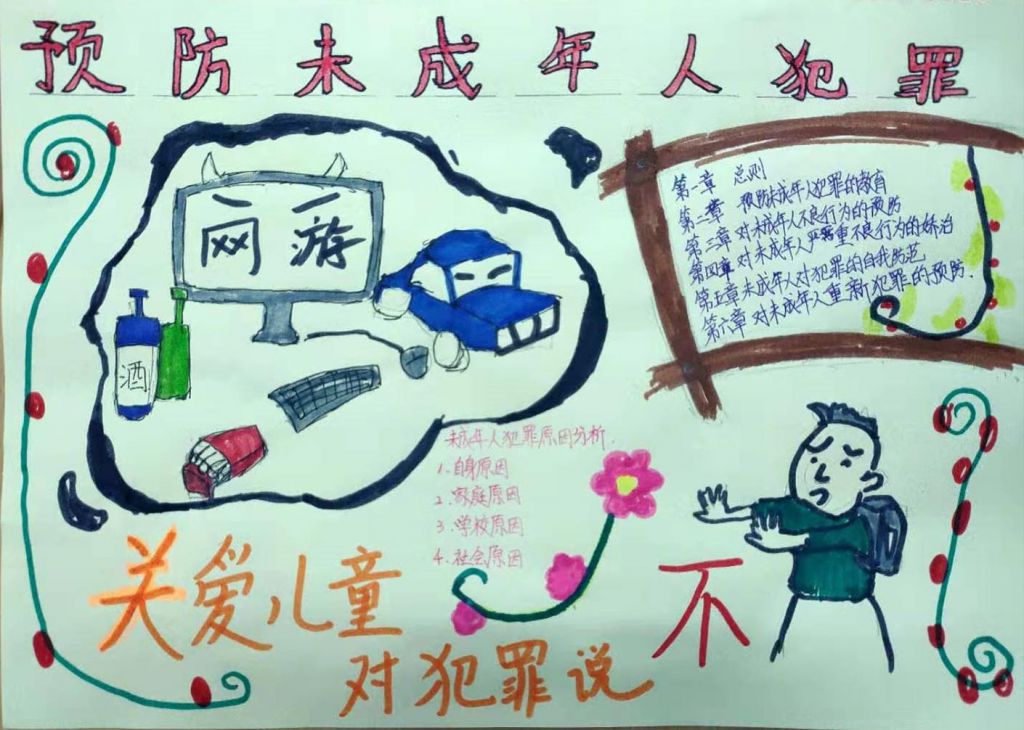 预防未成年人犯罪
网游
酒
第一章 总则
第二章 预防未成年人犯罪的教育
第三章 对未成年人不良行为的预防
第四章 对未成年人严重不良行为的矫治
第五章 未成年人对犯罪的自我防范
第六章 对未成年人重新犯罪的预防.
未成年人犯罪原因分析.
1.自身原因
2.家庭原因
3.学校原因
4.社会原因
关爱儿童
对犯罪说
不